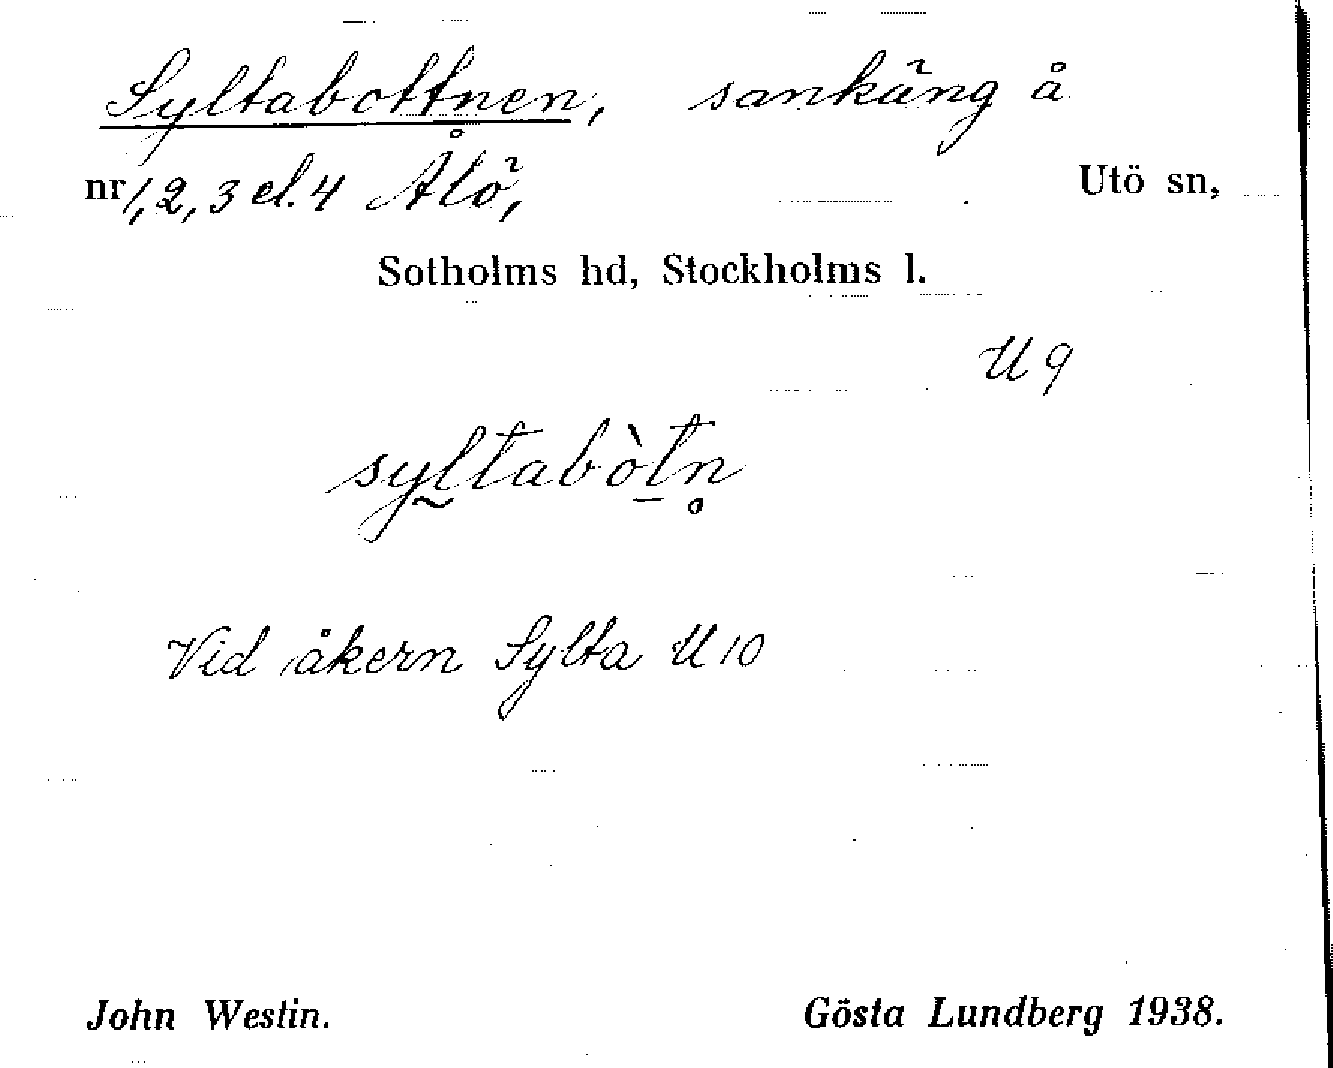 Syltabottnen, sankäng å
nr 1, 2, 3 el. 4 Ålö, Utö sn,
Sotholms hd, Stockholms l.
U 9
syltabòtn̥
Vid åkern Sylta U 10
John Westin. Gösta Lundberg 1938.